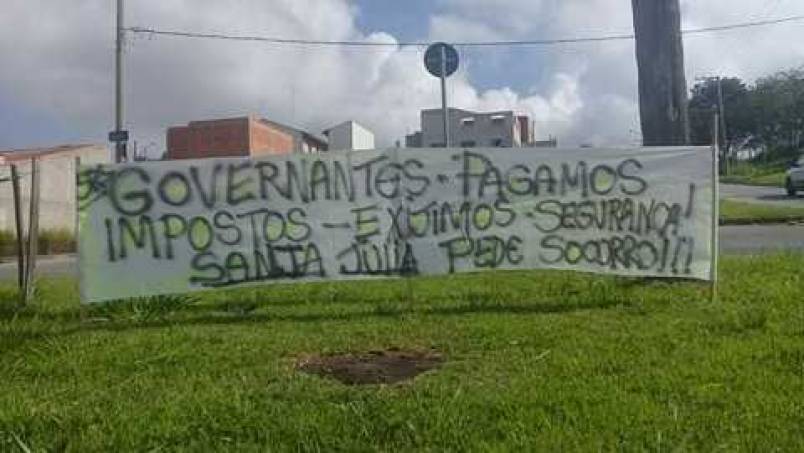 GOVERNANTES - PAGAMOS
IMPOSTOS - EXIJIMOS - SEGURANÇA!
SANTA JULIA PEDE SOCORRO!!!